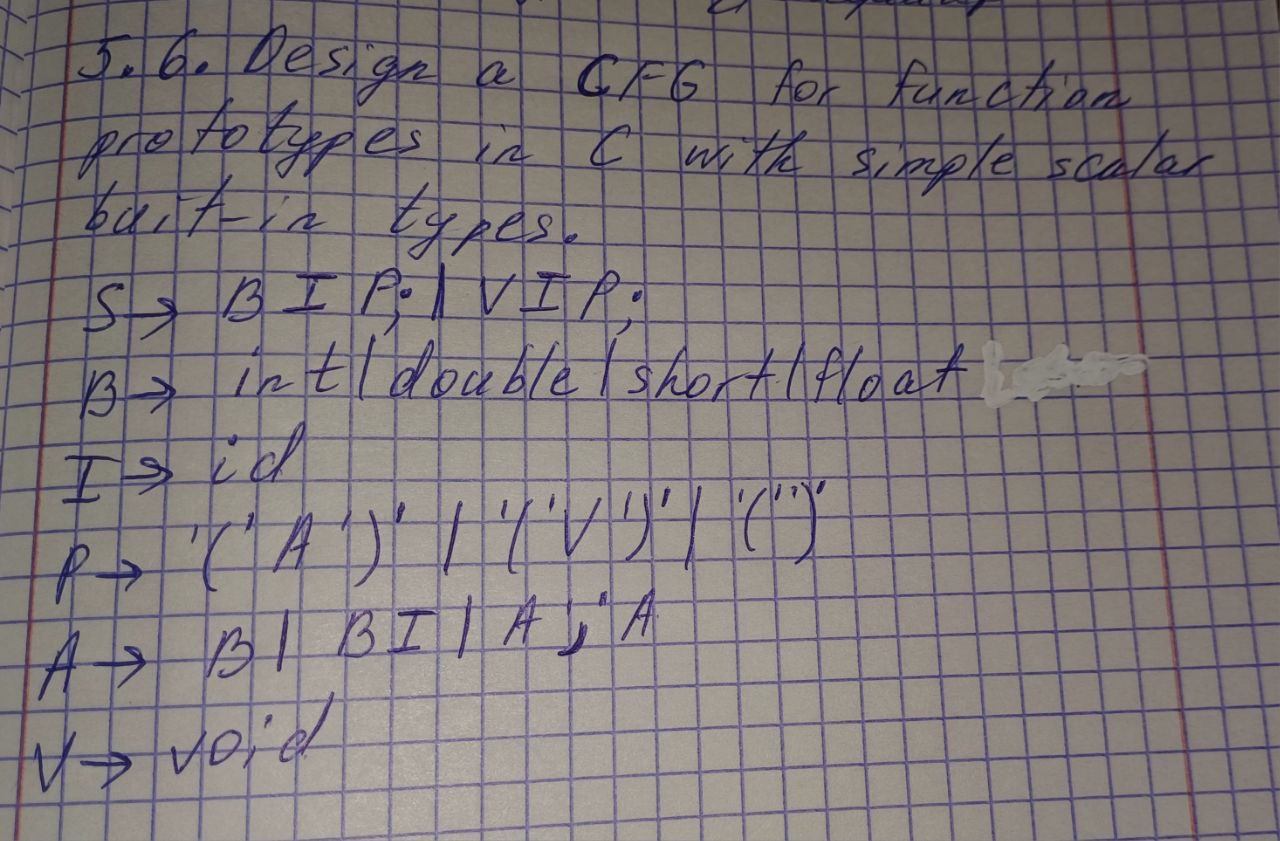 5.6. Design a CFG for function
prototypes in C with simple scalar
buit-in types.
S → B I P; | V I P;
B → int | double | short | float
I → id
P → '(' A ')' | '(' V ')' | '(' ')'
A → B | B I | A ',' A
V → void